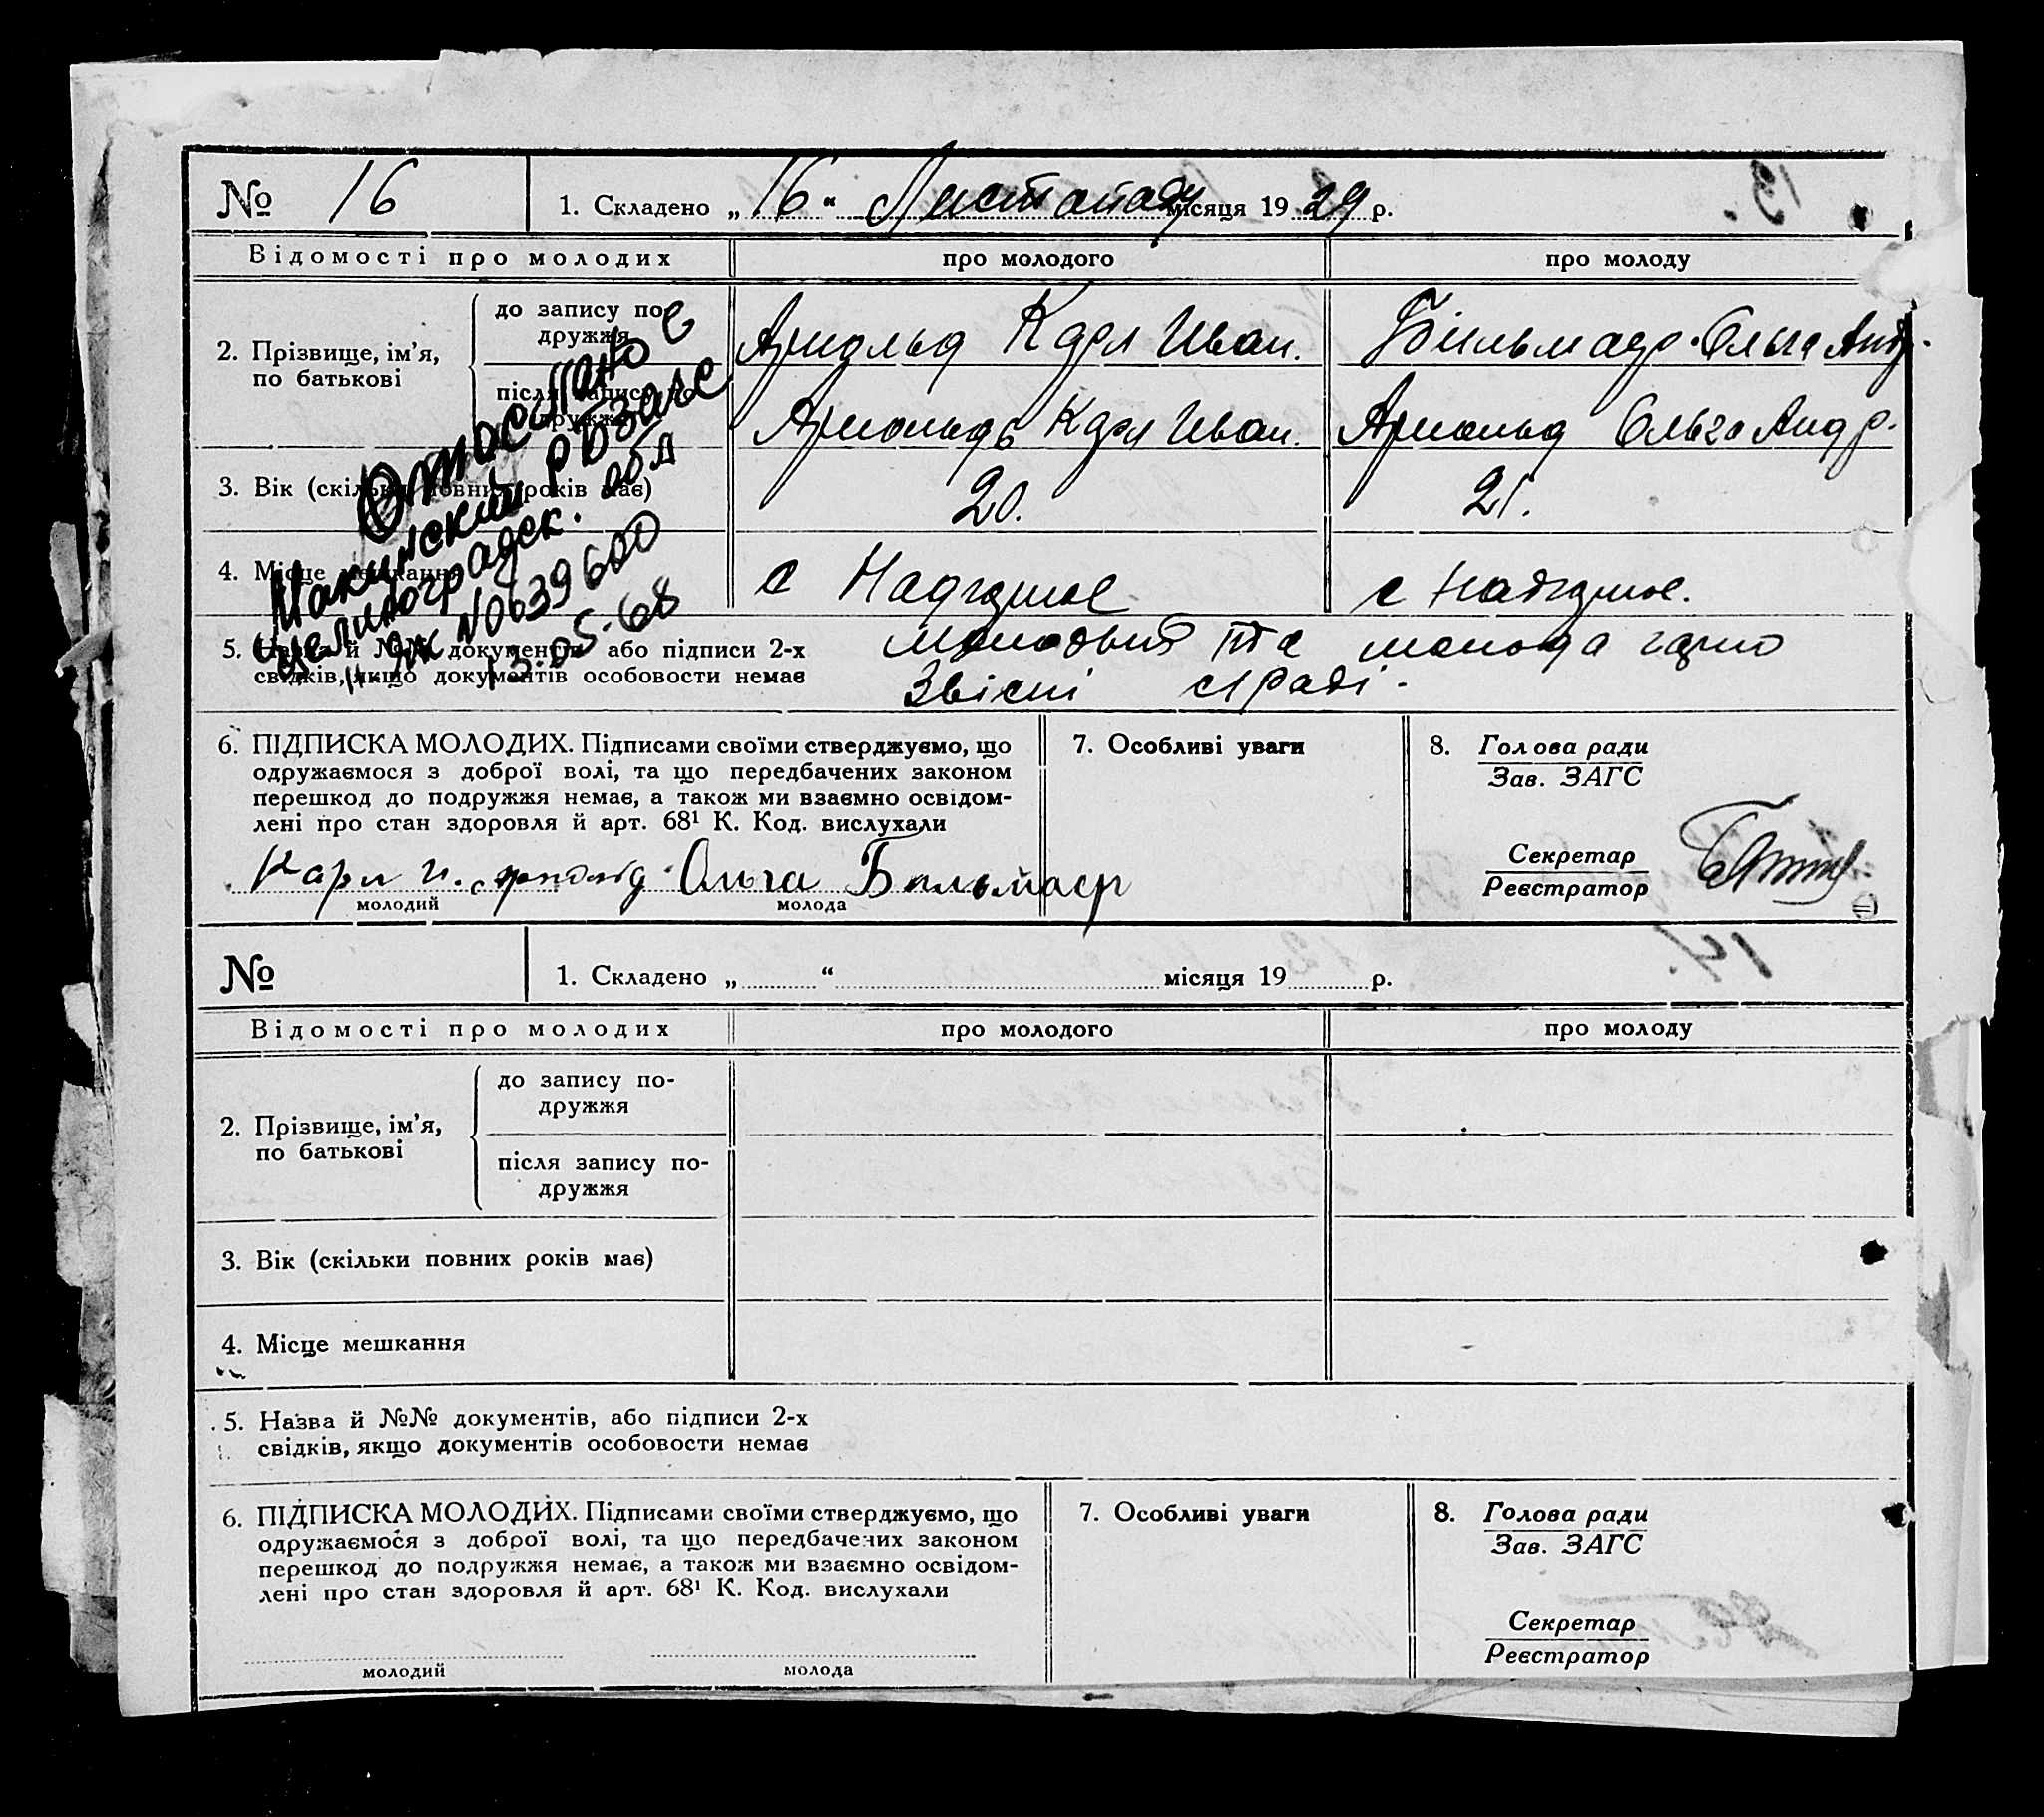 № 16 1. Складено „ 16 “ Листопаду місяця 19 29 р.
Відомості про молодих про молодого про молоду
2. Прізвище, ім’я, по батькові
до запису подружжя Арнольд Карл Иван. Бильмаер Ольга Андр.
після запису подружжя Арнольдъ Карл Иван. Арнольд Ольга Андр.
3. Вік (скільки повних років має) 20. 21.
4. Місце мешкання с Надеждное с Надеждное.
5. Назва й №№ документів, або підписи 2-х молодый та молода гарно
свідків, якщо документів особовости немає Звісні сграді.
Отослано в
Макинский РБзагс
Целиноградск. обл
II ЯК N0639600
13.05.68
6. ПІДПИСКА МОЛОДИХ. Підписами своїми стверджуємо, що
одружаємося з доброї волі, та що передбачених законом
перешкод до подружжя немає, а також ми взаємно освідом-
лені про стан здоровля й арт. 68¹ К. Код. вислухали
Карл И. Арнольд Ольга Бильмаер
молодий молода
7. Особливі уваги
8. Голова ради
Зав. ЗАГС
Секретар
Реєстратор
№ 1. Складено „ “ місяця 19 р.
Відомості про молодих про молодого про молоду
2. Прізвище, ім’я,
по батькові
до запису по-
дружжя
після запису по-
дружжя
3. Вік (скільки повних років має)
4. Місце мешкання
5. Назва й №№ документів, або підписи 2-х
свідків, якщо документів особовости немає
6. ПІДПИСКА МОЛОДИХ. Підписами своїми стверджуємо, що
одружаємося з доброї волі, та що передбачених законом
перешкод до подружжя немає, а також ми взаємно освідом-
лені про стан здоровля й арт. 68¹ К. Код. вислухали
молодий молода
7. Особливі уваги
8. Голова ради
Зав. ЗАГС
Секретар
Реєстратор